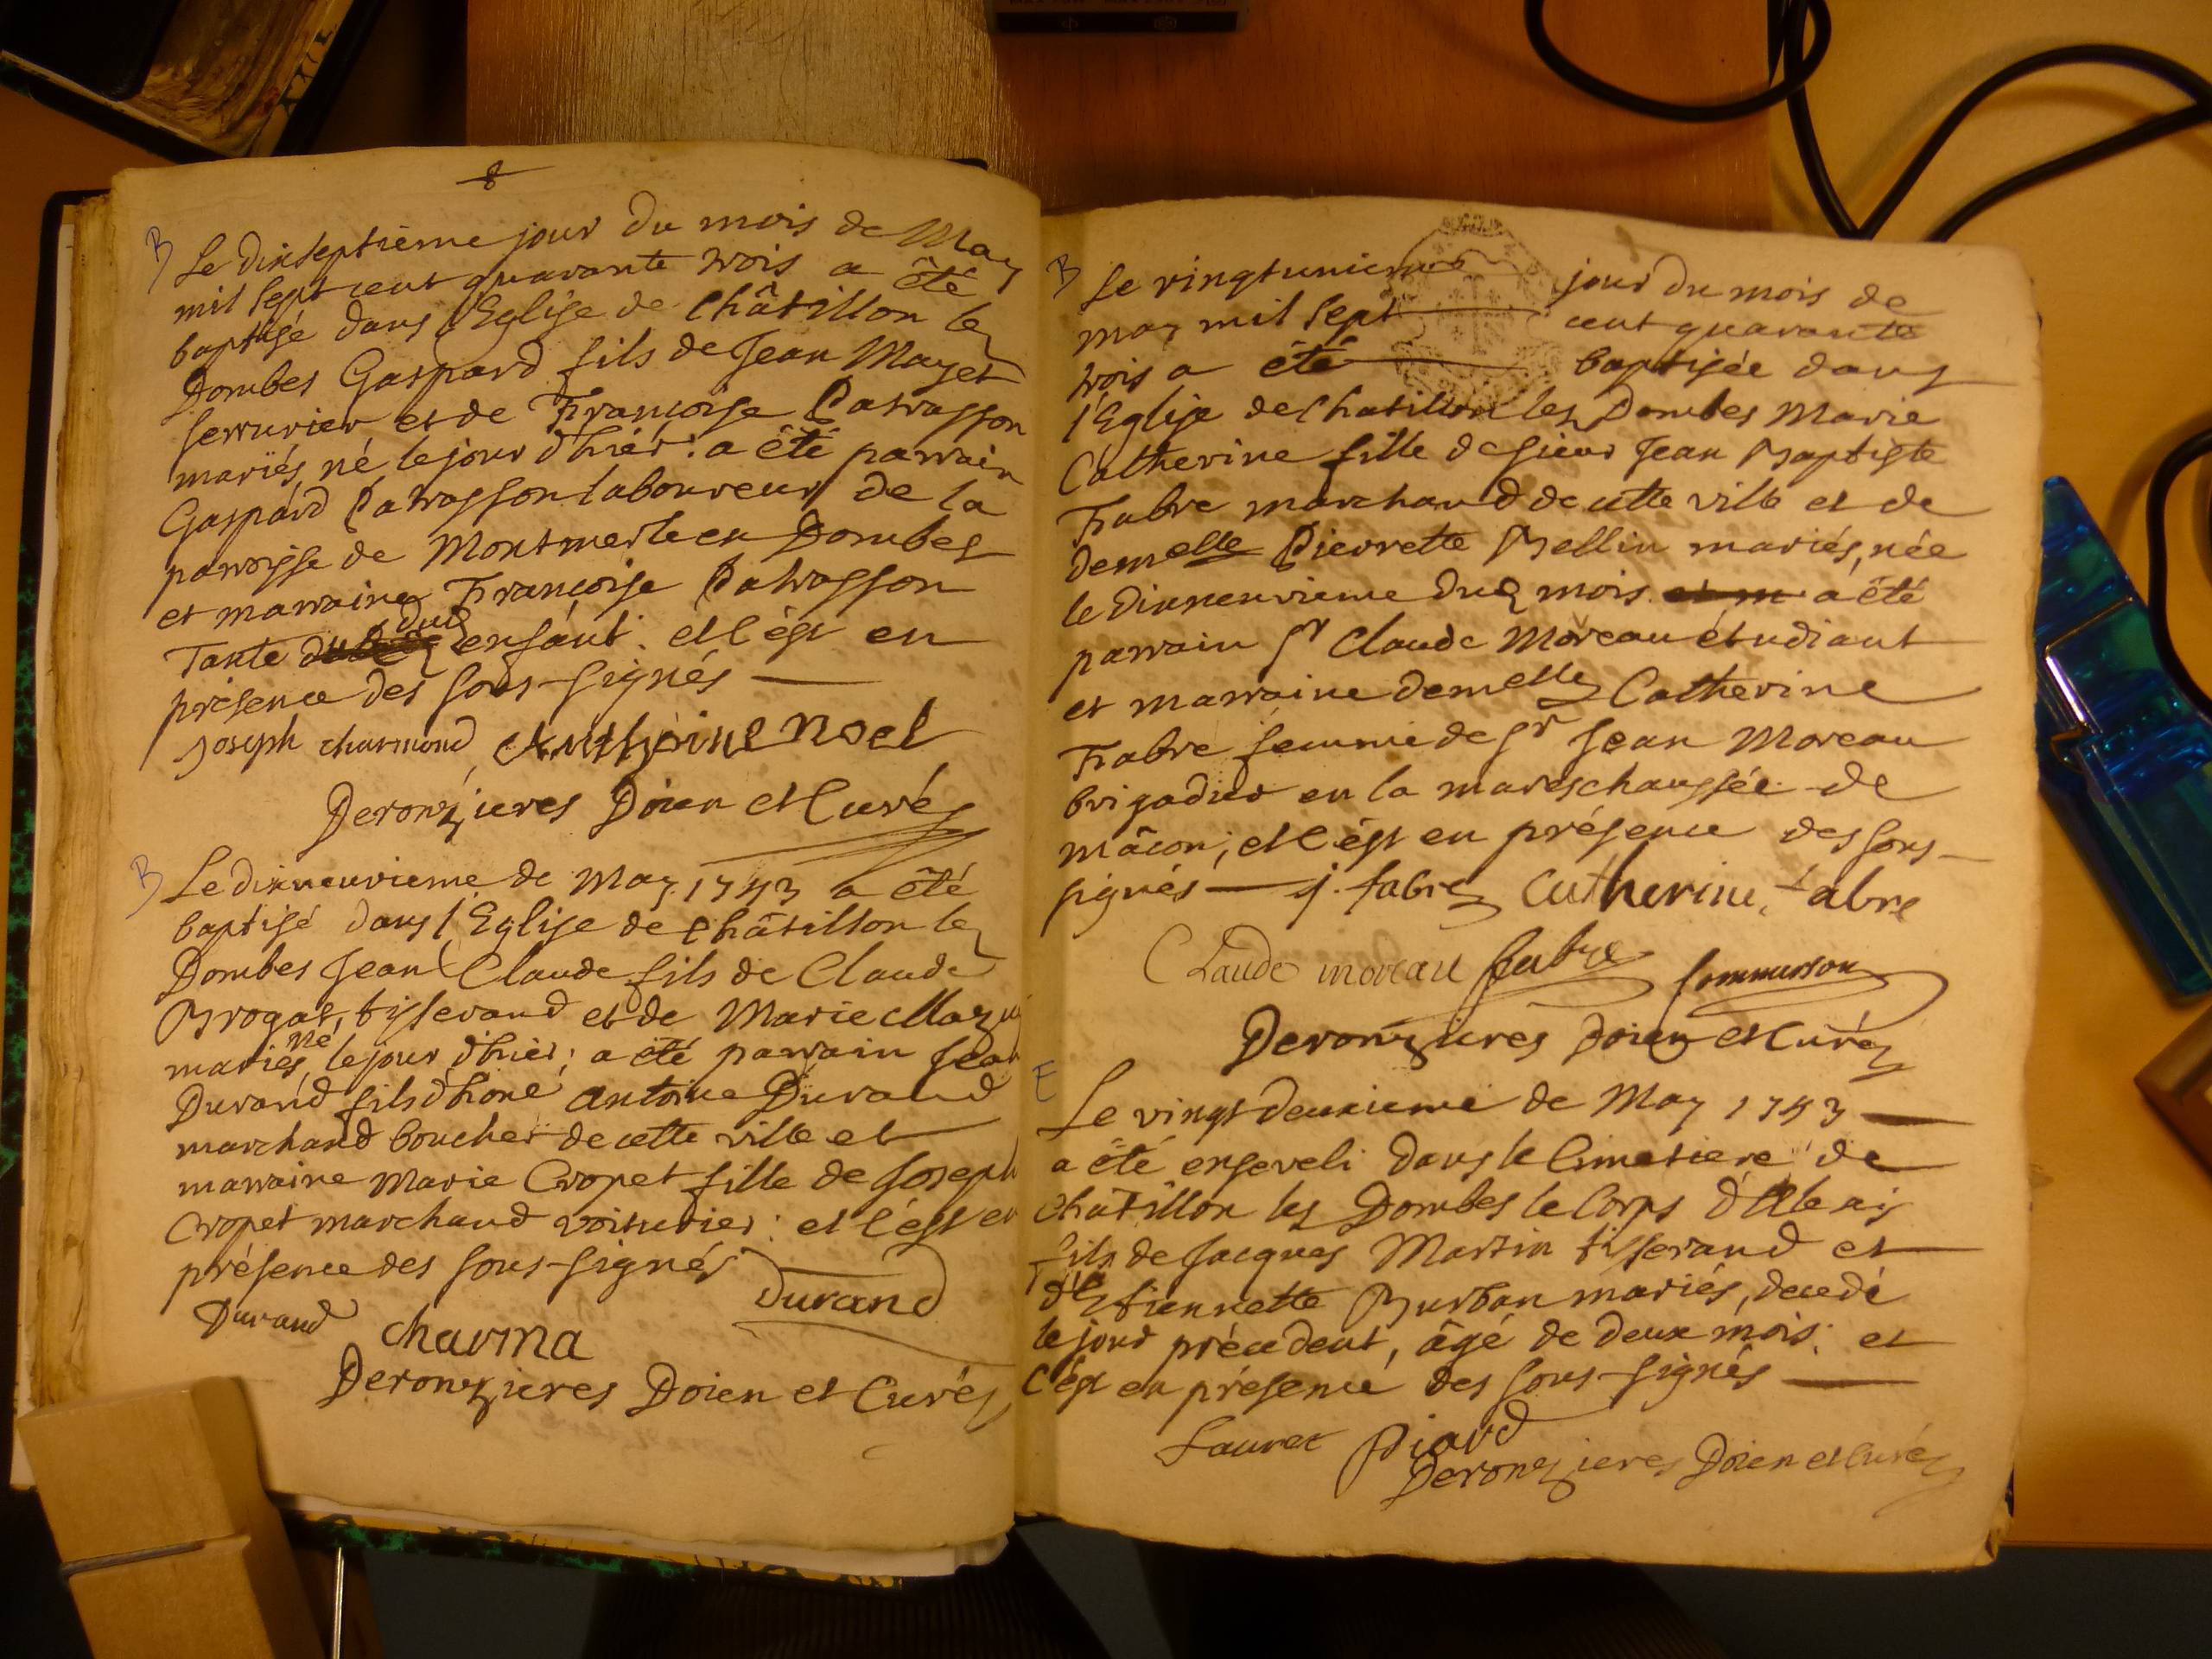 8
B Le dixseptième jour du mois de May
mil sept cent quarante trois a été
baptisé dans l'Eglise de Châtillon lez
Dombes Gaspard fils de Jean Mayet
serrurier et de Françoise Patrasson
mariés, né le jour d'hier: a été parrain
Gaspard Patrasson laboureur de la
parroisse de Montmerle en Dombes
et marraine Françoise Patrasson
Tante dud enfant. et c'est en
présence des sous-signés
Joseph charmond Anthoine Noel
Deronzieres Doien et Curé
B Le dixneuvieme de May 1743 a été
baptisé dans l'Eglise de Châtillon lez
Dombes Jean Claude fils de Claude
Brogat, tisserand et de Marie
mariés, né le jour d'hier; a été parrain Jean
Durand fils d'hone antoine Durand
marchand boucher de cette ville et
marraine Marie Cropet fille de Joseph
Cropet marchand voiturier: et c'est en
présence des sous-signés
Durand charma Durand
Deronzieres Doien et Curé
B Le vingtunieme jour du mois de
may mil sept cent quarante
trois a été baptisée dans
l'Eglise de Chatillon les Dombes Marie
Catherine fille de sieur Jean Baptiste
Fabre marchand de cette ville et de
demelle Pierrette Bellin mariés, née
le dixneuvieme dud mois a été
parrain sr Claude Moreau étudiant
et marraine demelle Catherine
Fabre femme de sr Jean Moreau
brigadier en la mareschaussée de
mâcon; et c'est en présence des sous-
signés j. fabre Catherine fabre
Claude moreau fabre Commerson
Deronzieres Doien et Curé
E Le vingtdeuxieme de May 1743
a été enseveli dans le Cimetiere de
Châtillon les Dombes le Corps d'Alexis
fils de Jacques Martin tisserand et
d'Etiennette Burban mariés, decedé
le jour précédent, âgé de deux mois: et
c'est en présence des sous-signés
Lauret Piaud
Deronzieres Doien et Curé